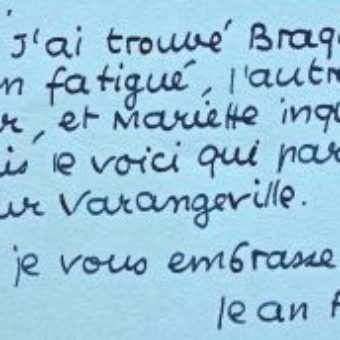 J'ai trouvé Braq
n fatigué, l'autr
r, et Mariette inq
is le voici qui par
ur Varangeville.
je vous embrasse
Jean